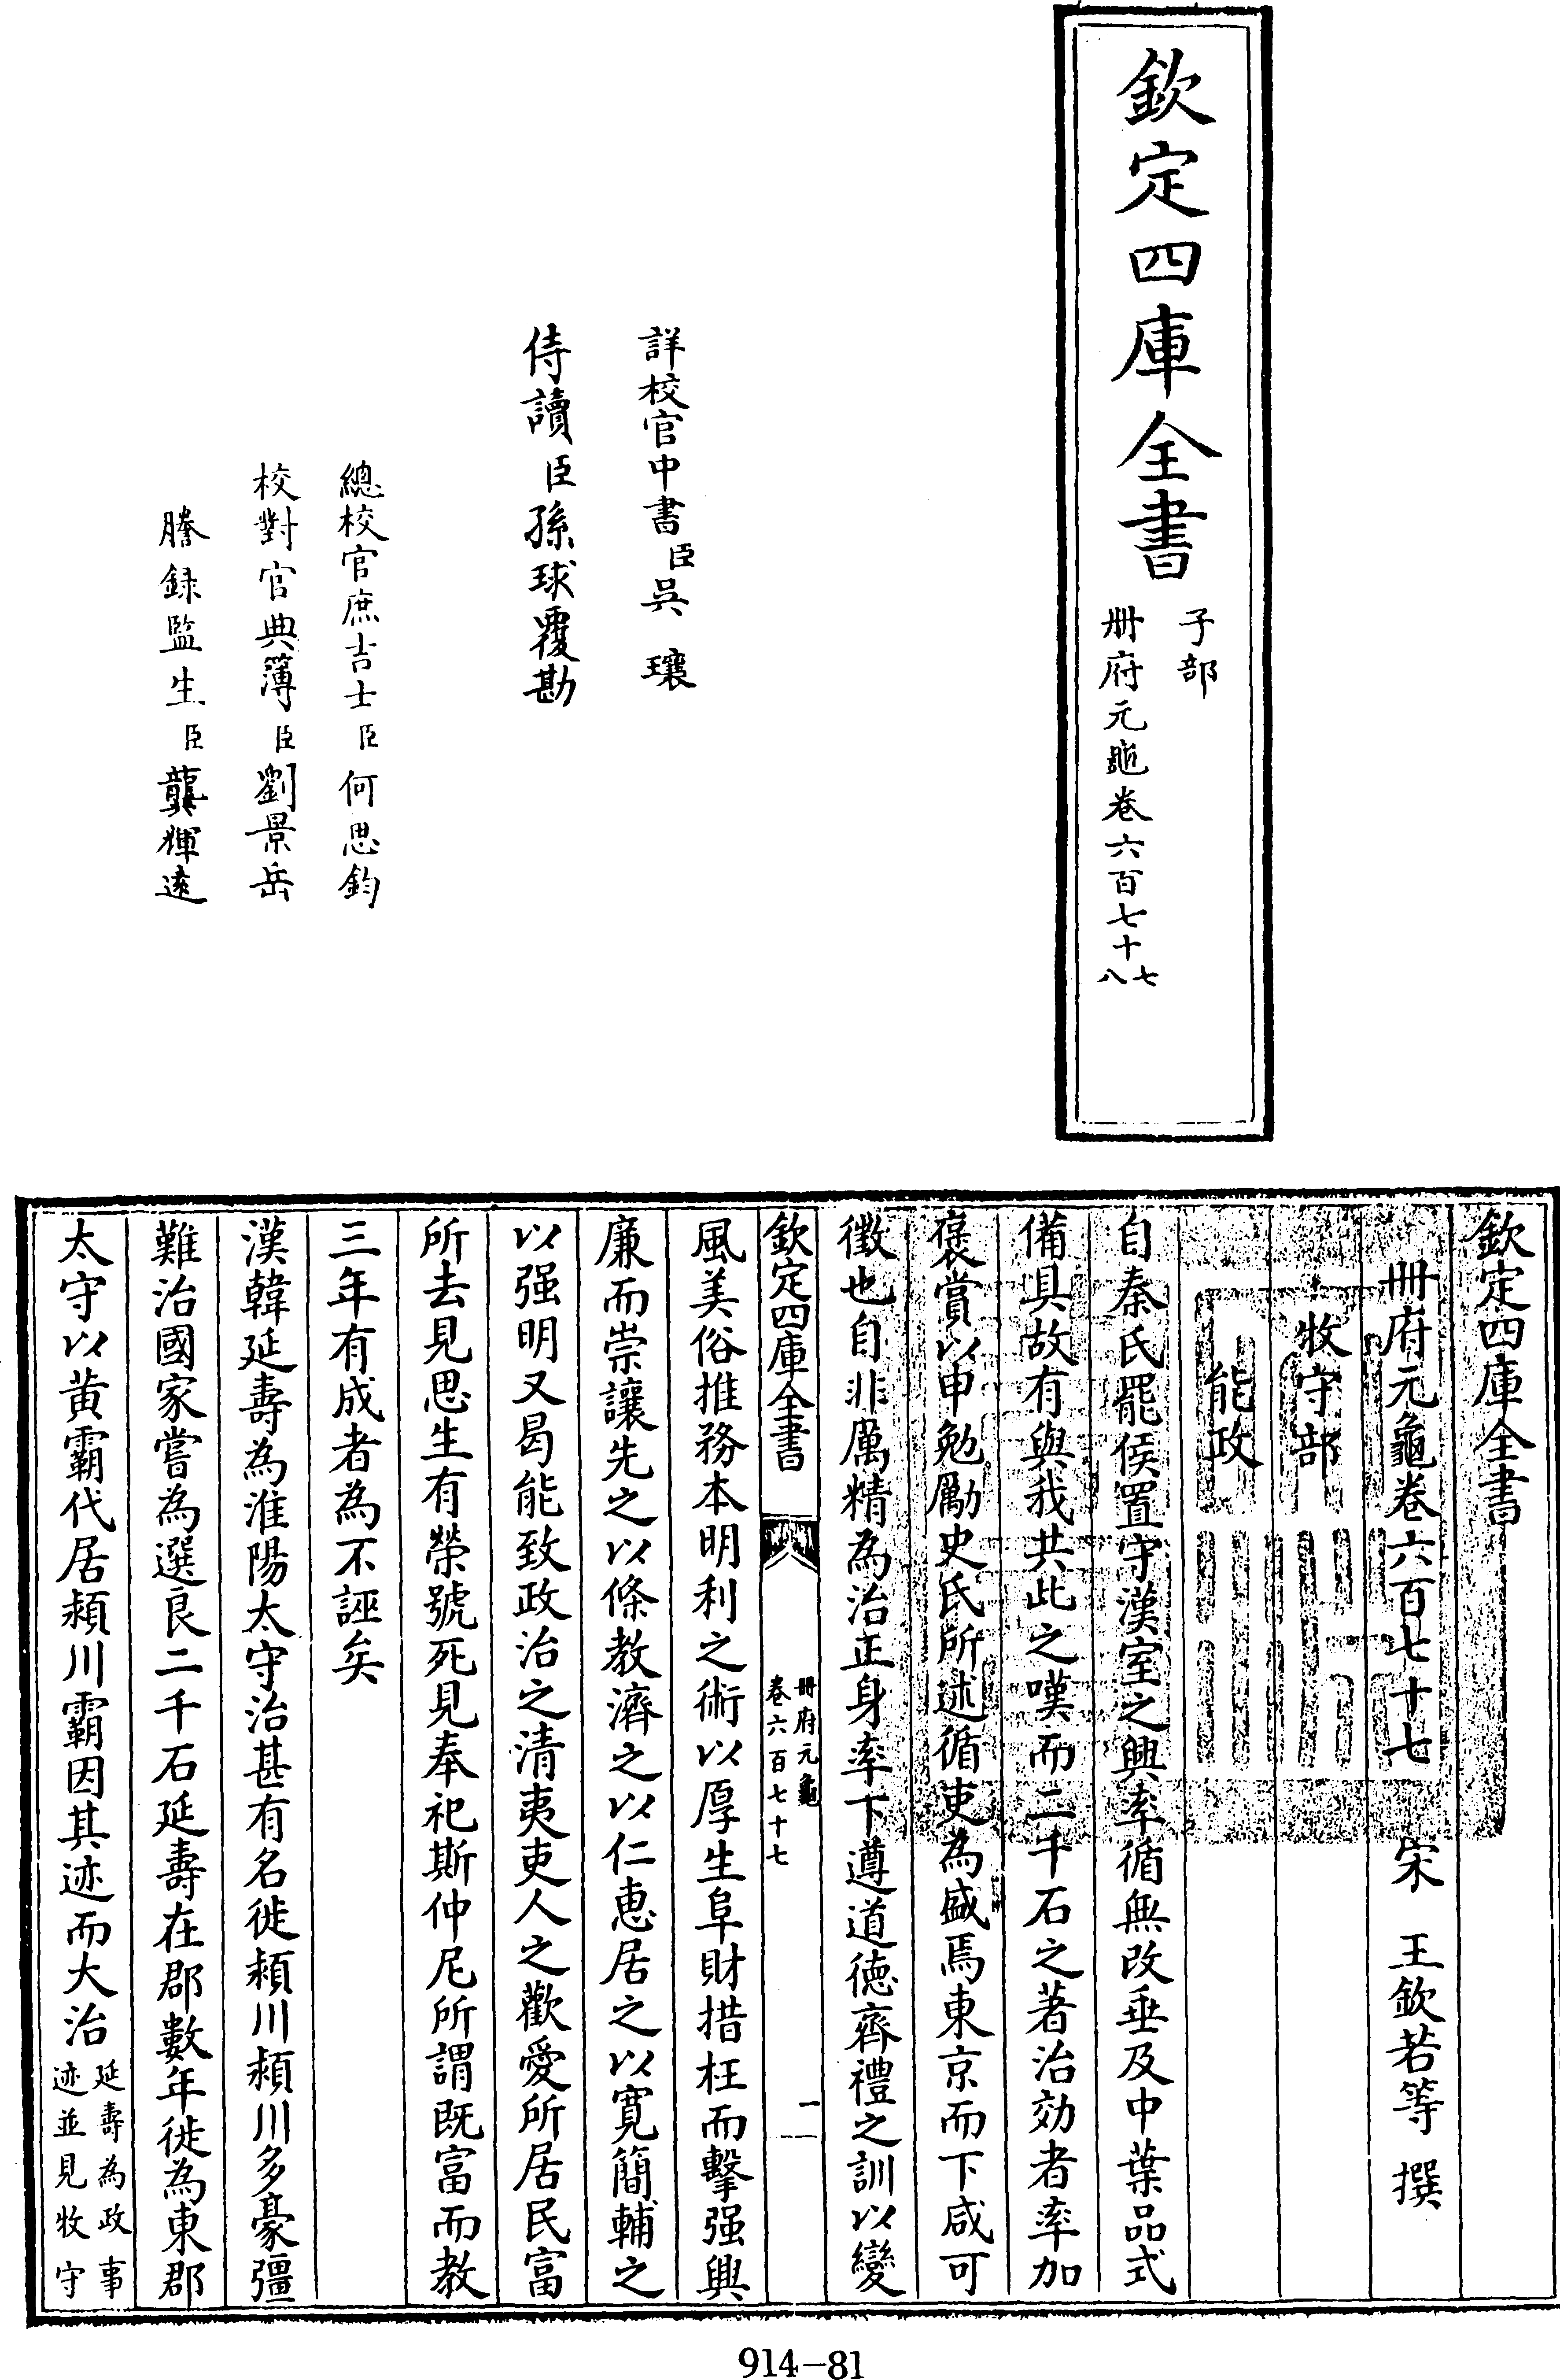 欽定四庫全書
子部
冊府元龜卷六百七十七
八
詳校官中書臣吳瓖
侍讀臣孫球覆勘
總校官庶吉士臣何思鈞
校對官典簿臣劉景岳
謄録監生臣龔輝遠
欽定四庫全書
冊府元龜卷六百七十七 宋 王欽若等 撰
牧守部
能政
自秦氏罷侯置守漢室之興率循無改垂及中葉品式
備具故有與我共此之嘆而二千石之著治効者率加
褒賞以申勉勵史氏所述循吏為盛焉東京而下咸可
徵也自非厲精為治正身率下遵道德齊禮之訓以變
欽定四庫全書
冊府元龜
卷六百七十七
一
風美俗推務本明利之術以厚生阜財措枉而擊强興
廉而崇讓先之以條教濟之以仁惠居之以寛簡輔之
以强明又曷能致政治之清夷吏人之歡愛所居民富
所去見思生有榮號死見奉祀斯仲尼所謂既富而教
三年有成者為不誣矣
漢韓延壽為淮陽太守治甚有名徙潁川潁川多豪彊
難治國家嘗為選良二千石延壽在郡數年徙為東郡
太守以黄霸代居潁川霸因其迹而大治
延壽為政事
迹並見牧守
914-81